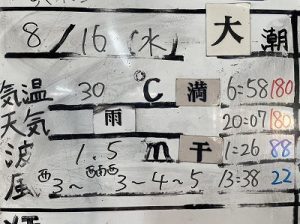 8/16(水) 大潮
気温 30 ℃ 満 6:58 180
天気 雨 20:07 180
波 1.5 m 干 1:26 88
風 西3〜 西南西3〜4〜5 13:38 22